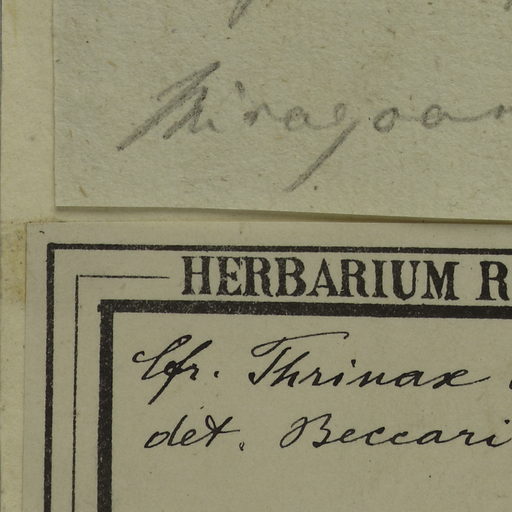 Miragoan
HERBARIUM R
Cfr. Thrinax
det. Beccari